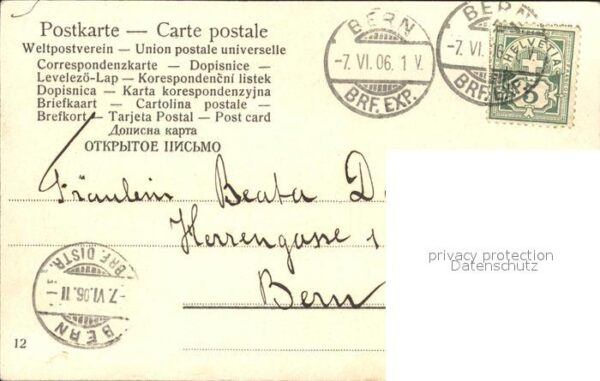 Postkarte — Carte postale
Weltpostverein — Union postale universelle
Correspondenzkarte — Dopisnice —
Levelező-Lap — Korespondenční listek
Dopisnica — Karta korespondenzyjna
Briefkaart — Cartolina postale —
Brefkort — Tarjeta Postal — Post card
Дописна карта
ОТКРЫТОЕ ПИСЬМО
BERN
-7. VI. 06. 1 V.
BRF. EXP.
BERN
-7. VI. 06.
BRF. EXP.
HELVETIA
5
Fräulein Beata D
Herrengasse 1
Bern
privacy protection
Datenschutz
BRF. DISTR.
-7. VI. 06. 11
BERN
12